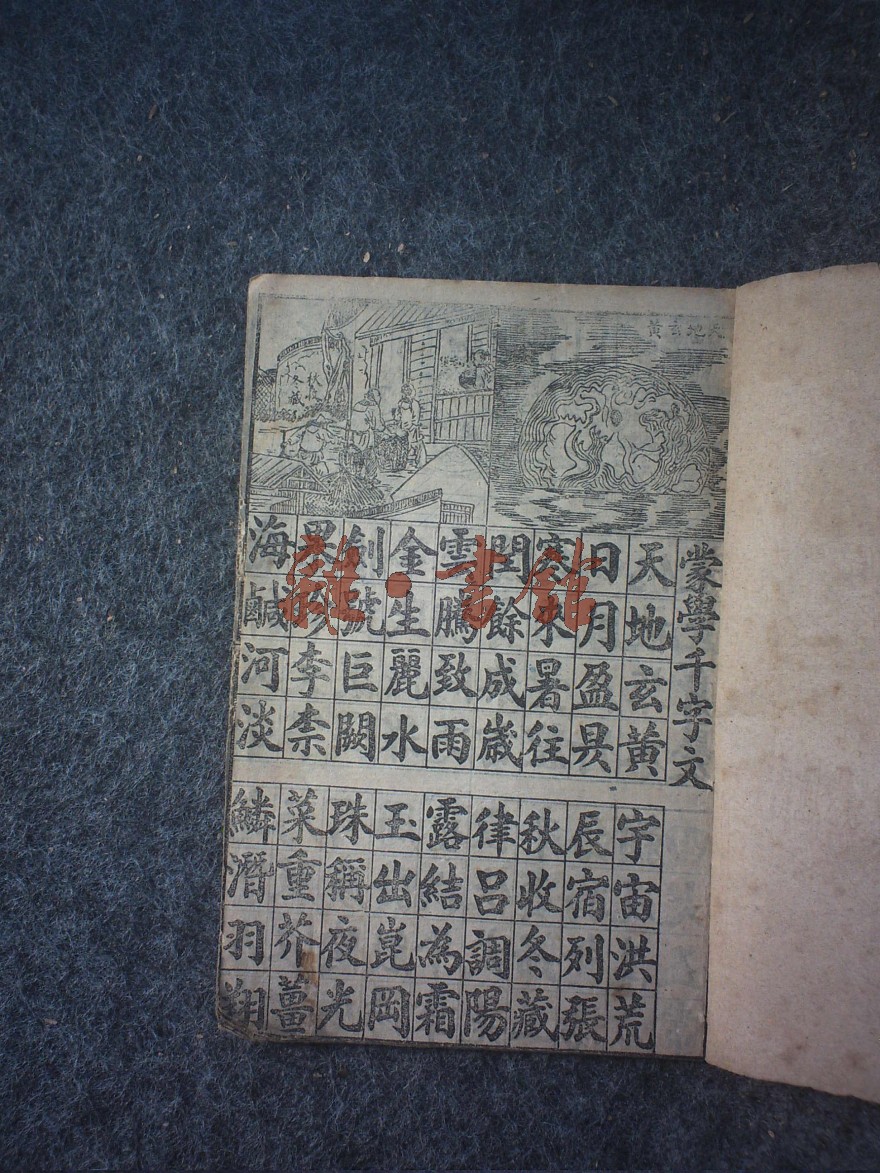 天地玄黃
秋收冬藏
蒙學千字文
天地玄黃
日月盈昃
寒來暑往
閏餘成歲
雲騰致雨
金生麗水
劍號巨闕
果珍李柰
海鹹河淡
宇宙洪荒
辰宿列張
秋收冬藏
律呂調陽
露結為霜
玉出崑岡
珠稱夜光
菜重芥薑
鱗潛羽翔
雜·書館